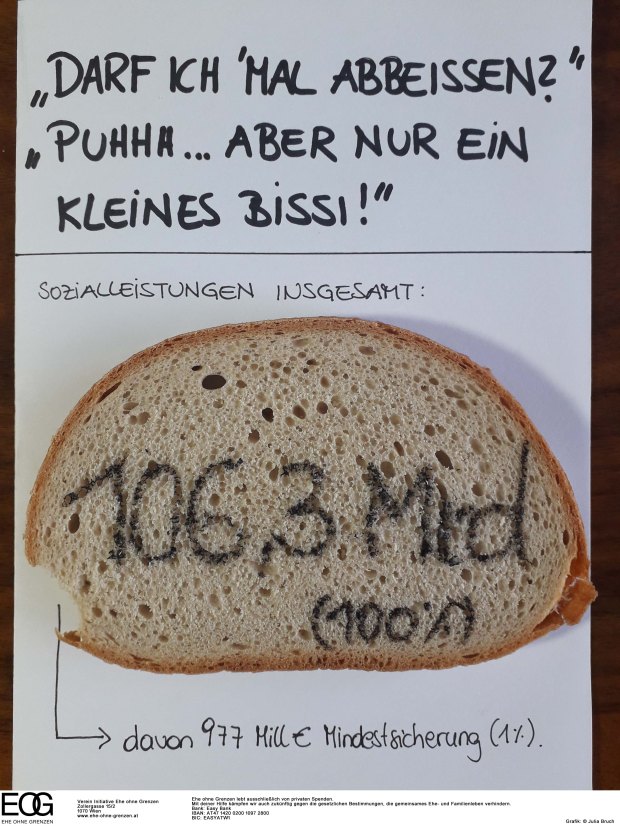 „DARF ICH 'MAL ABBEISSEN?"
„PUHHH... ABER NUR EIN
KLEINES BISSI!"
SOZIALLEISTUNGEN INSGESAMT:
106,3 Mrd
(100%)
davon 977 Mill € Mindestsicherung (1%).
EOG
EHE OHNE GRENZEN
Verein Initiative Ehe ohne Grenzen
Zollergasse 15/2
1070 Wien
www.ehe-ohne-grenzen.at
Ehe ohne Grenzen lebt ausschließlich von privaten Spenden.
Mit deiner Hilfe kämpfen wir auch zukünftig gegen die gesetzlichen Bestimmungen, die gemeinsames Ehe- und Familienleben verhindern.
Bank: Easy Bank
IBAN: AT47 1420 0200 1097 2800
BIC: EASYATW1
Grafik: © Julia Bruch